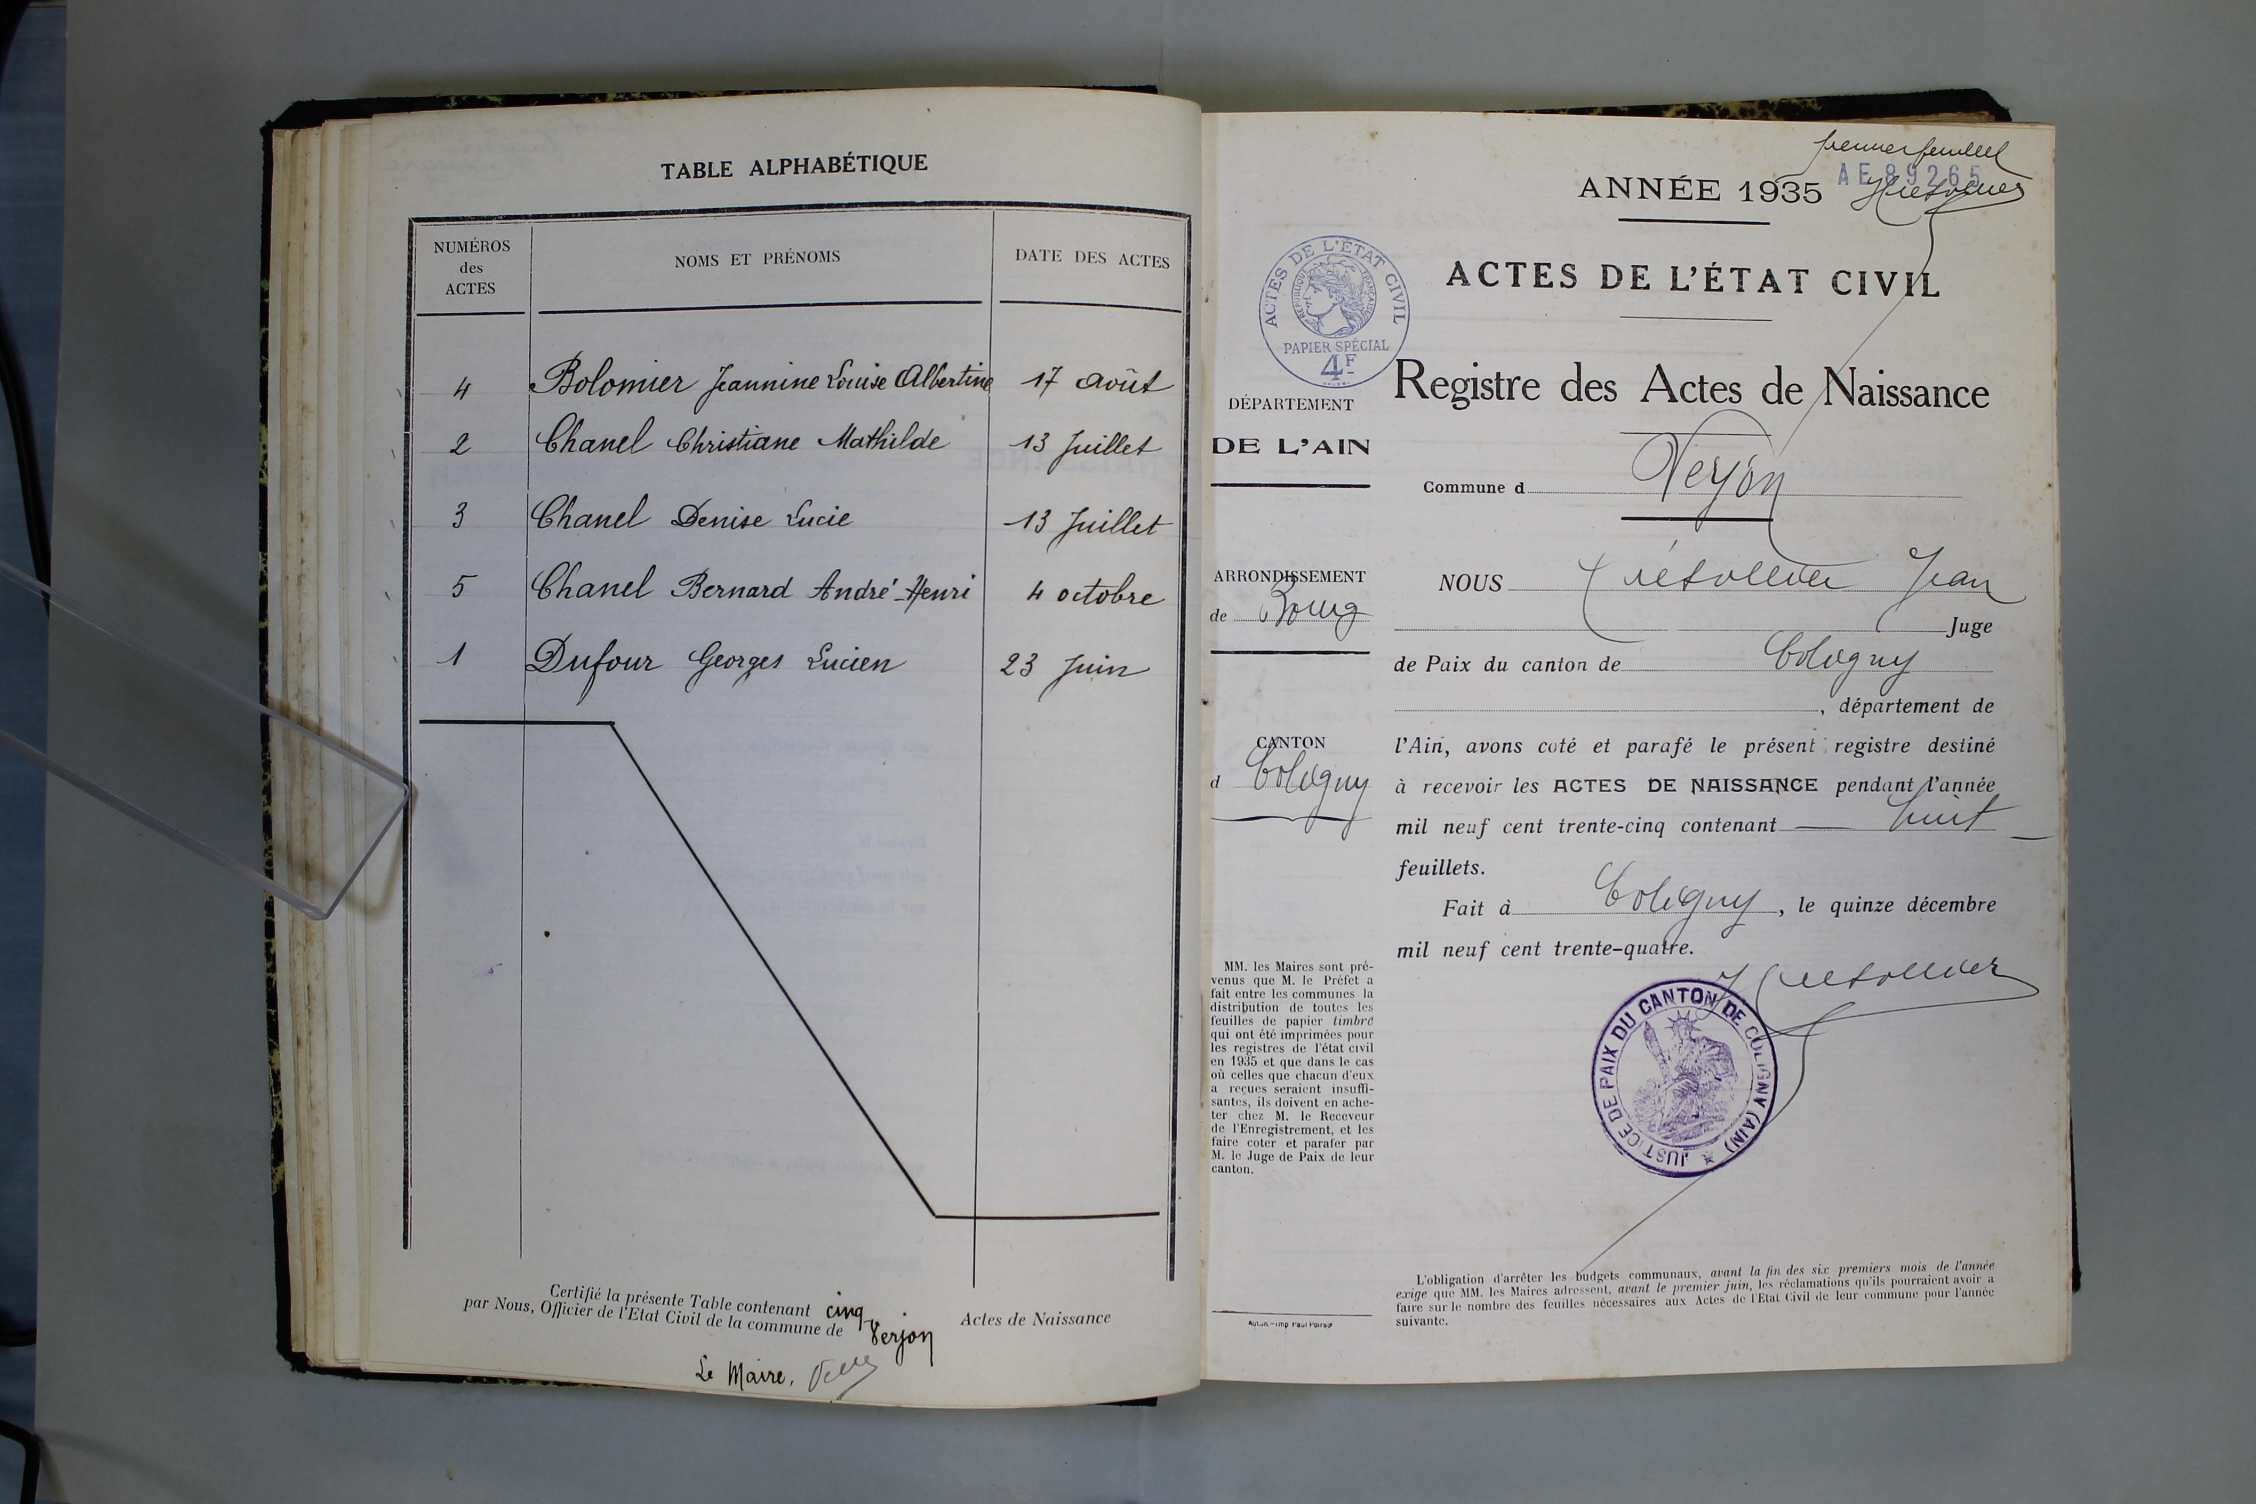 TABLE ALPHABÉTIQUE
NUMÉROS
des
ACTES
NOMS ET PRÉNOMS
DATE DES ACTES
4 Bolomier Jeannine Louise Albertine 17 août
2 Chanel Christiane Mathilde 13 Juillet
3 Chanel Denise Lucie 13 Juillet
5 Chanel Bernard André-Henri 4 octobre
1 Dufour Georges Lucien 23 Juin
Certifié la présente Table contenant cinq Actes de Naissance
par Nous, Officier de l'Etat Civil de la commune de Verjon
Le Maire,
premier feuillet
AE89265
ANNÉE 1935
ACTES DE L'ÉTAT CIVIL
RÉPUBLIQUE FRANÇAISE
PAPIER SPÉCIAL
4F
ACTES DE L'ÉTAT CIVIL
Registre des Actes de Naissance
DÉPARTEMENT
DE L'AIN
Commune d Verjon
ARRONDISSEMENT
de Bourg
CANTON
d Coligny
MM. les Maires sont pré-
venus que M. le Préfet a
fait entre les communes la
distribution de toutes les
feuilles de papier timbré
qui ont été imprimées pour
les registres de l'état civil
en 1935 et que dans le cas
où celles que chacun d'eux
a reçues seraient insuffi-
santes, ils doivent en ache-
ter chez M. le Receveur
de l'Enregistrement, et les
faire coter et parafer par
M. le Juge de Paix de leur
canton.
Autun.-Imp. Paul Poirson
NOUS Jean
Juge
de Paix du canton de Coligny
, département de
l'Ain, avons coté et parafé le présent registre destiné
à recevoir les ACTES DE NAISSANCE pendant l'année
mil neuf cent trente-cinq contenant huit
feuillets.
Fait à Coligny, le quinze décembre
mil neuf cent trente-quatre.
JUSTICE DE PAIX DU CANTON DE COLIGNY (AIN)
L'obligation d'arrêter les budgets communaux, avant la fin des six premiers mois de l'année
exige que MM. les Maires adressent, avant le premier juin, les réclamations qu'ils pourraient avoir a
faire sur le nombre des feuilles nécessaires aux Actes de l'Etat Civil de leur commune pour l'année
suivante.